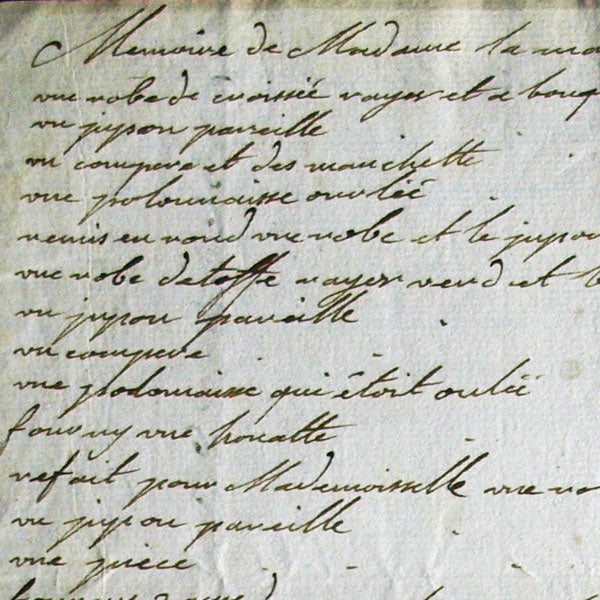 Memoire de Madame la ma
une robe de croissée rayer et a bouq
un jupon pareille
un compere et des manchette
une polonnaisse ouvléé
remis en rond une robe et le jupon
une robe detoffe rayer verd et b
un jupon pareille
un compere
une podonnaisse qui étoit ouléé
fourny une houatte
refait pour Mademoisselle une ro
un jupon pareille
une piece